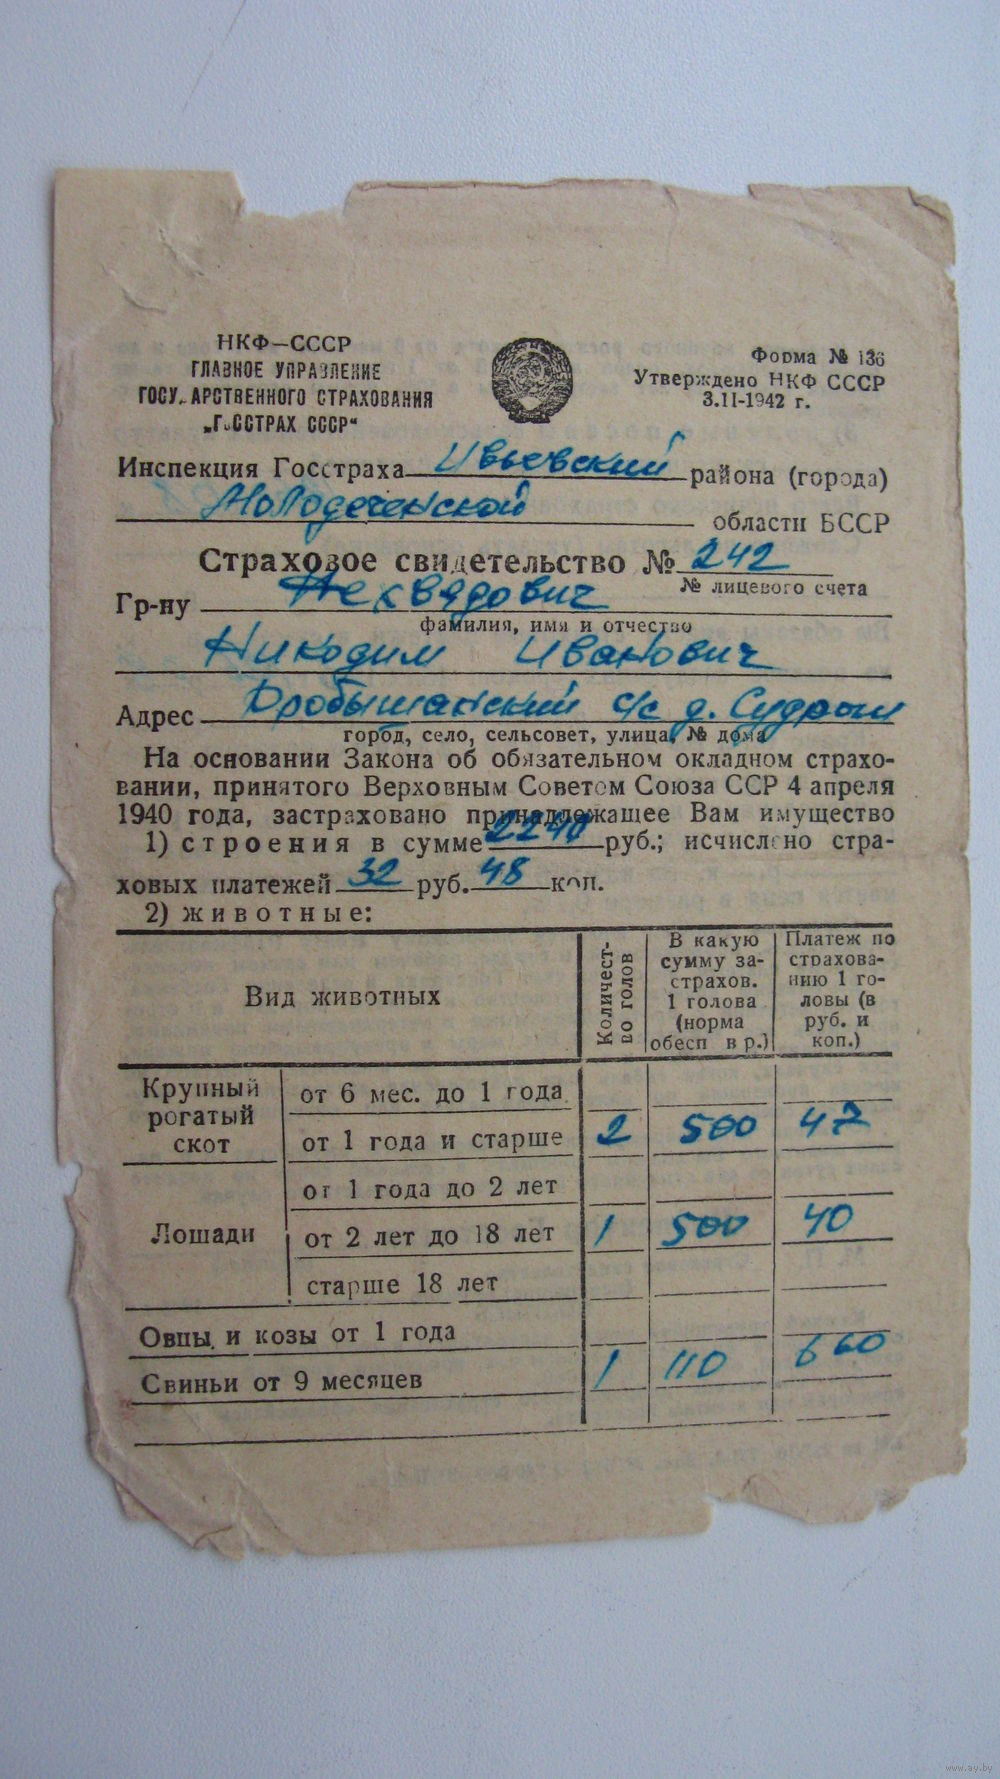 НКФ—СССР
ГЛАВНОЕ УПРАВЛЕНИЕ
ГОСУ АРСТВЕННОГО СТРАХОВАНИЯ
„ГОССТРАХ СССР“
Форма № 136
Утверждено НКФ СССР
3.II-1942 г.
Инспекция Госстраха Ивьевский района (города)
Молодеченской области БССР
Страховое свидетельство № 242
№ лицевого счета
Гр-ну Нехвядович
фамилия, имя и отчество
Никодим Иванович
Адрес Дробышанский с/с д. Судроти
город, село, сельсовет, улица, № дома
На основании Закона об обязательном окладном страхо-
вании, принятого Верховным Советом Союза ССР 4 апреля
1940 года, застраховано принадлежащее Вам имущество
1) строения в сумме 2240 руб.; исчислено стра-
ховых платежей 32 руб. 48 коп.
2) животные:
Вид животных
Количест-
во голов
В какую
сумму за-
страхов.
1 голова
(норма
обесп в р.)
Платеж по
страхова-
нию 1 го-
ловы (в
руб. и
коп.)
Крупный
рогатый
скот
от 6 мес. до 1 года
от 1 года и старше 2 500 47
Лошади
от 1 года до 2 лет
от 2 лет до 18 лет 1 500 40
старше 18 лет
Овцы и козы от 1 года
Свиньи от 9 месяцев 1 110 6 60
www.ay.by